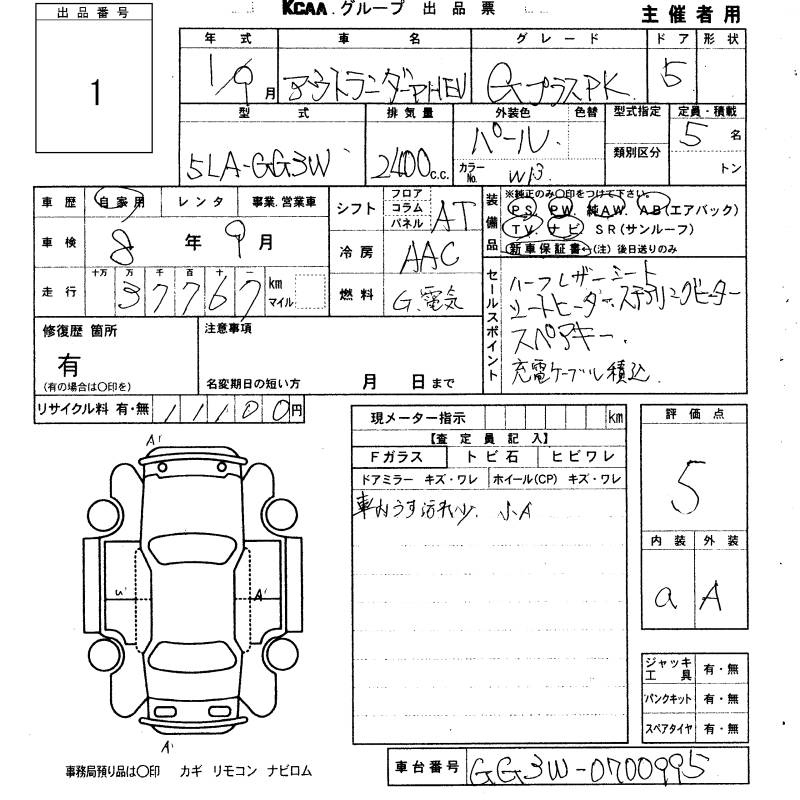 出品番号
1
KCAA.グループ 出品票
主催者用
年式 車名 グレード ドア 形状
1/9月 アウトランダーPHEV GプラスPK 5
型式 排気量 外装色 色替 型式指定 定員・積載
5LA-GG3W 2400c.c. パール 5名
カラーNo. W13 類別区分 トン
車歴 自家用 レンタ 事業.営業車
車検 8年9月
走行 十万 万 千 百 十 一 km マイル
37767
シフト フロア コラム パネル AT
冷房 AAC
燃料 G.電気
装備品
※純正のみ〇印をつけて下さい。
PS PW. 純AW. AB(エアバック)
TV. ナビ SR(サンルーフ)
新車保証書←(注)後日送りのみ
セールスポイント
ハーフレザーシート
シートヒーター.ステアリングヒーター
スペアキー.
充電ケーブル積込.
修復歴 箇所
有
(有の場合は〇印を)
注意事項
名変期日の短い方 月 日まで
リサイクル料 有・無 11100円
現メーター指示 km
【査定員記入】
Fガラス トビ石 ヒビワレ
ドアミラー キズ・ワレ ホイール(CP) キズ・ワレ
車内うす汚れ少. 小A
評価点
5
内装 外装
a A
A'
U'
A'
A'
ジャッキ工具 有・無
パンクキット 有・無
スペアタイヤ 有・無
事務局預り品は〇印 カギ リモコン ナビロム
車台番号 GG3W-0700995